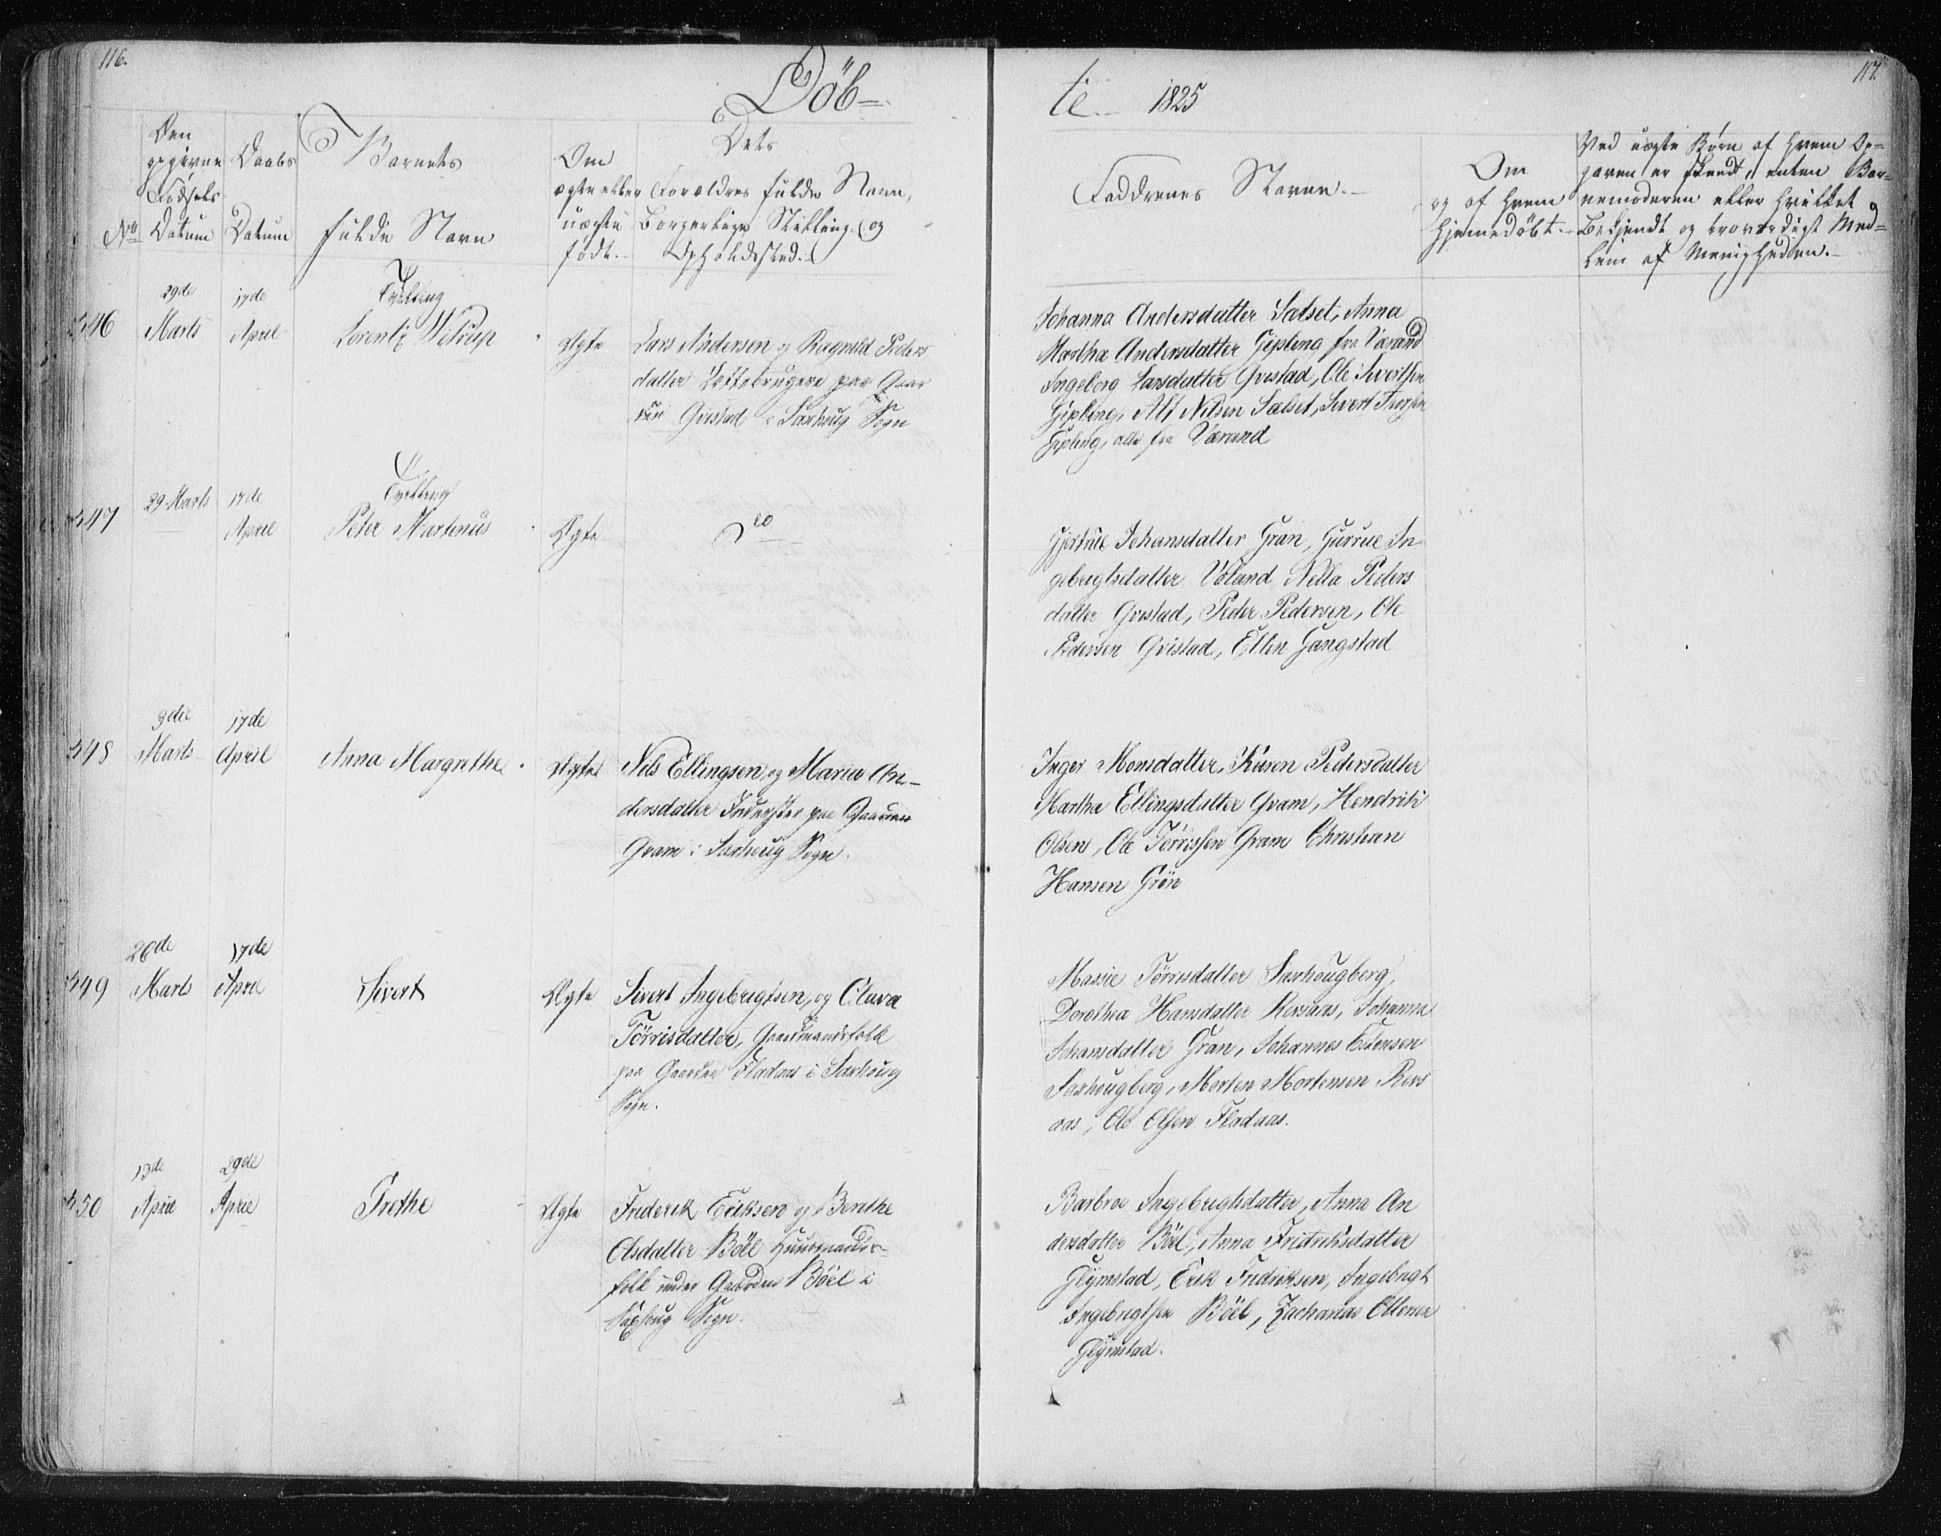 116.
117.
Döb-
te. 1825
Den
opgivne
Fødsels
Datum
No
Daabs
Datum
Barnets
fulde Navn
Om
ægte eller
uægte
født.
Dets
Forældres fulde Navn,
Borgerlige Stilling og
Opholdssted.
Faddrenes Navne.
Om
og af hvem
hjemedöbt.
Ved uægte Børn af hvem Op-
gaven er skeedt, enten Bar-
nemoderen eller hvilket
Bekjendt og troværdigt Med-
lem af Menigheden.
46
29de
Marts
17de
April
Tvilling
Lorentz Witrup
Ægte
Lars Andersen og Ragnild Peders
datter Lottebrugere paa Gaar
den Gristad i Saxhoug Sogn
Johanna Andersdatter Salset, Anna
Martha Andersdatter Gipling fra Værand
Ingeborg Larsdatter Grestad, Ole Sivertsen
Gipling, Alt Nilsen Salset, Sivert
Gipling, alle fra Værand
47
29 Marts
17de
April
Tvilling
Peter Martenus
Ægte
Do
Gjertrue Johansdatter Gran, Gurrue In
gebrigtsdatter Voland Nella Peders
datter Grestad, Peder Pedersen, Ole
Pedersen Gristad, Ellen Gangstad
48
3die
Marts
17de
April
Anna Margrethe
Ægte
Nels Ellingsen, og Maria An-
dersdatter Inderster paa Gaarden
Gram i Saxhoug Sogn.
Inger Monsdatter, Karen Pedersdatter
Martha Ellingsdatter Gram, Hendrik
Olsen, Ole Tørrissen Gram Christian
Hansen Grön
49
26de
Marts
17de
April
Sivert
Ægte
Sivert Ingebrigtsen, og Olava
Törrisdatter, Gaardmandsfolk
paa Gaarden Fladaas i Saxhoug
Sogn.
Massie Törrisdatter Saxhougberg,
Dorothea Hansdatter Rersaas, Johanna
Johansdatter Gran, Johannes
Saxhougberg, Morten Mortensen Rers
aas, Ole Olsen Fladaas.
50
13de
April
29de
April
Grethe
Ægte
Frederik Eriksen og Benthe
Olsdatter Böel Huusmands-
folk under Gaarden Böel i
Saxhoug Sogn.
Barbroe Ingebrigtsdatter, Anna An
dersdatter Böel, Anna Fridriksdatter
Glymstad, Erik Fredriksen, Ingebrigt
Ingebrigtsen Böel, Zacharias
Glymstad.